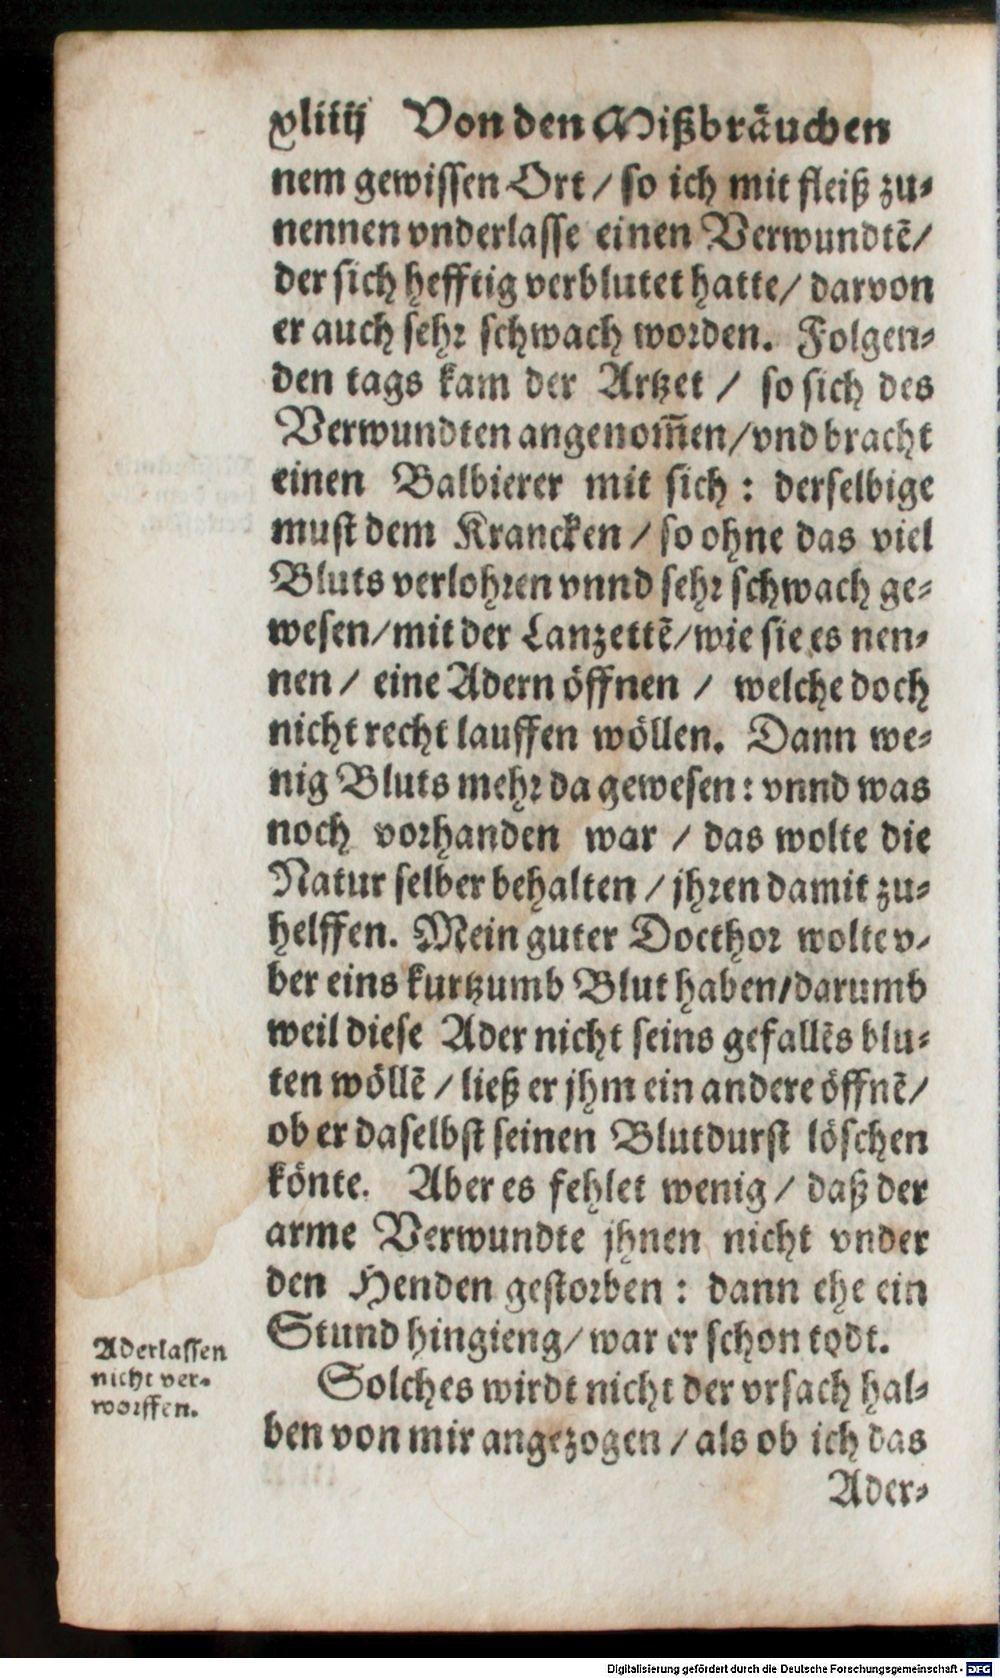 xliiij Von den Mißbräuchen
nem gewissen Ort / so ich mit fleiß zu⸗
nennen vnderlasse einen Verwundtẽ/
der sich hefftig verblutet hatte/ darvon
er auch sehr schwach worden. Folgen⸗
den tags kam der Artzet / so sich des
Verwundten angenom̃en/vnd bracht
einen Balbierer mit sich : derselbige
must dem Krancken / so ohne das viel
Bluts verlohren vnnd sehr schwach ge⸗
wesen/mit der Lanzettẽ/wie sie es nen⸗
nen / eine Adern öffnen / welche doch
nicht recht lauffen wöllen. Dann we⸗
nig Bluts mehr da gewesen: vnnd was
noch vorhanden war / das wolte die
Natur selber behalten / jhren damit zu⸗
helffen. Mein guter Docthor wolte v⸗
ber eins kurtzumb Blut haben/darumb
weil diese Ader nicht seins gefallẽs blu⸗
ten wöllẽ / ließ er jhm ein andere öffnẽ/
ob er daselbst seinen Blutdurst löschen
könte. Aber es fehlet wenig / daß der
arme Verwundte jhnen nicht vnder
den Henden gestorben : dann ehe ein
Stund hingieng/ war er schon todt.
Aderlassen
nicht ver⸗
worffen.
Solches wirdt nicht der vrsach hal⸗
ben von mir angezogen / als ob ich das
Ader⸗
Digitalisierung gefördert durch die Deutsche Forschungsgemeinschaft - DFG